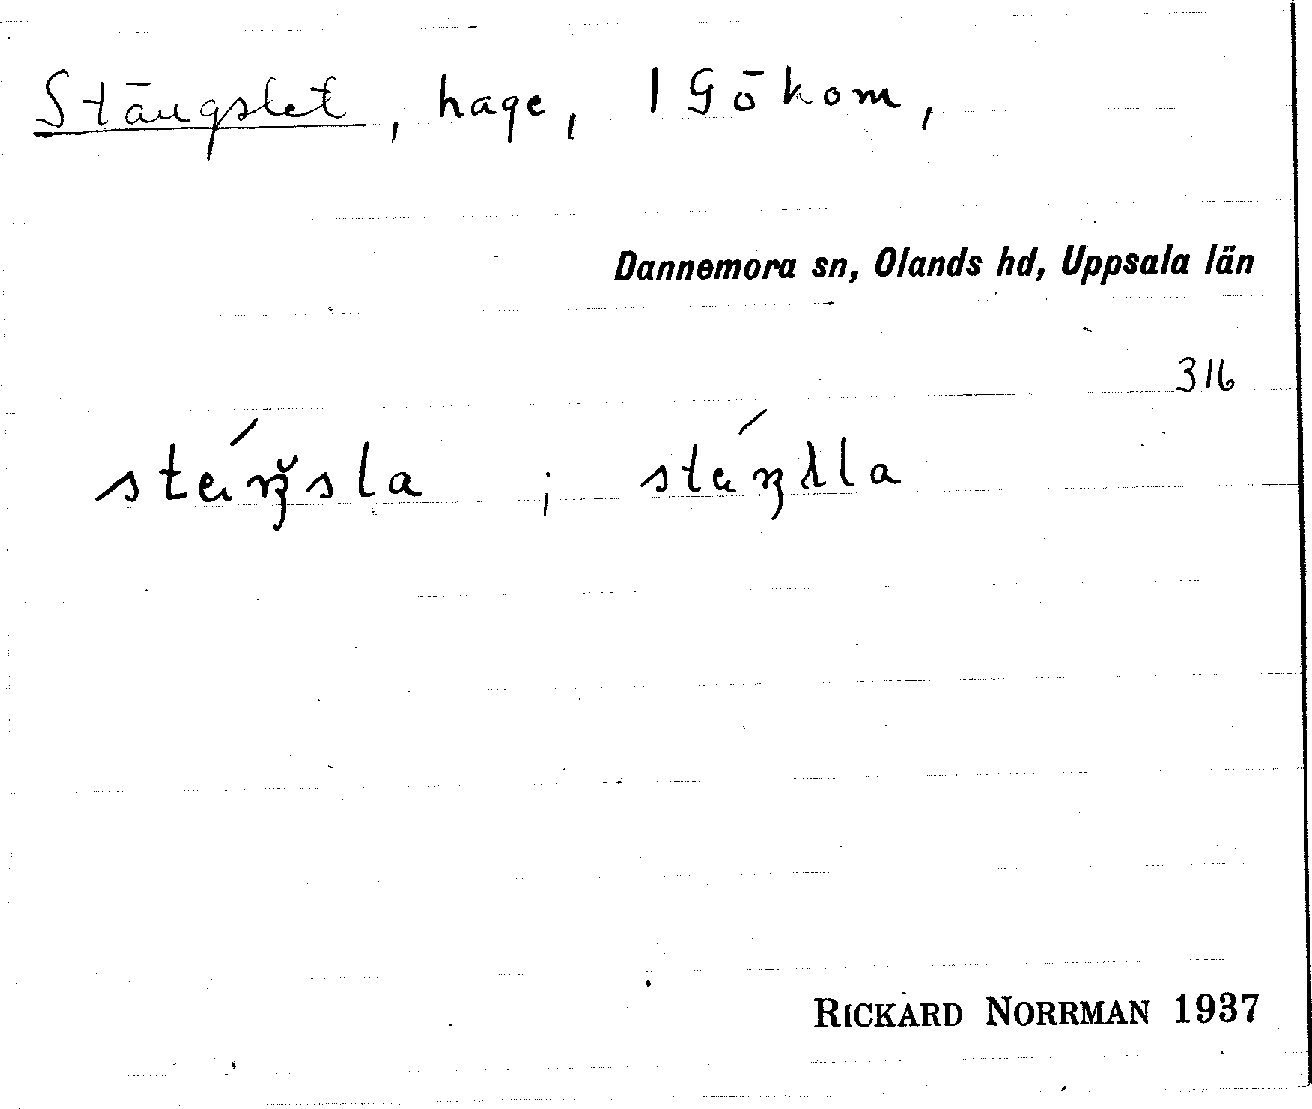 Stängslet, hage, 1 Gökom,
Dannemora sn, Olands hd, Uppsala län
316
RICKARD NORRMAN 1937